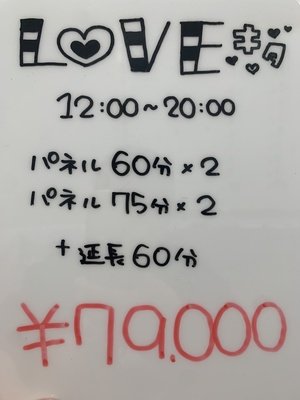 LOVE
12:00~20:00
パネル 60分×2
パネル 75分×2
+延長60分
¥79.000